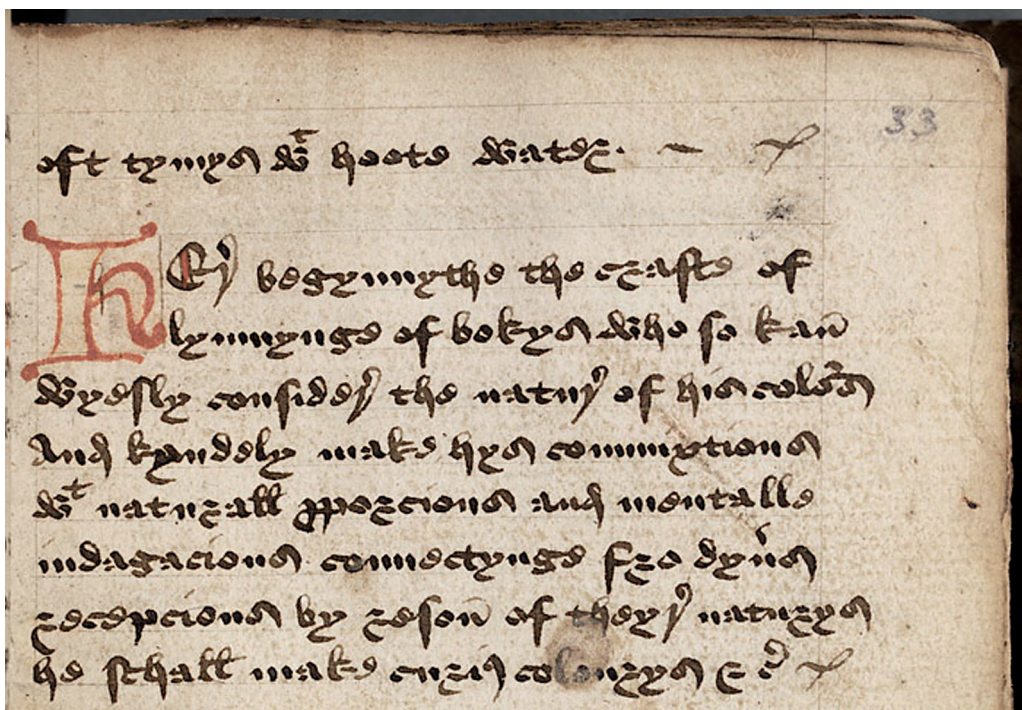 oft tymys wt hoote water. 33
HEr begynnythe the crafte of
lymnynge of bokys who so kan
wyesly consider the natur of his colors
And kyndely make hys commyxtions
wt naturall pporcions and mentalle
indagacions connectynge fro dyuers
recepcions by reson of theyr naturys
he schall make curis colourys & c